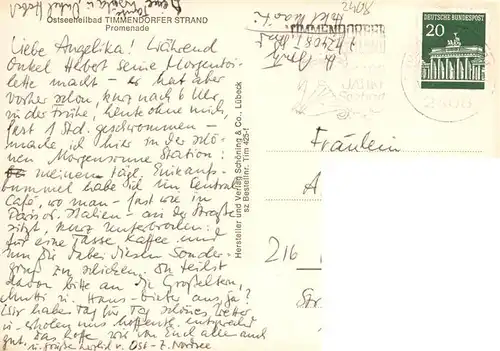 Ostseeheilbad TIMMENDORFER STRAND
Promenade
Liebe Angelika! Während
Onkel Hubert seine Morgentoi-
lette macht – er hat aber
vorher schon, kurz nach 6 Uhr,
in der Frühe, heute ohne mich,
fast 1 Std. geschwommen –
mache ich hier in der schö-
nen Morgensonne Station:
meinem tägl. Einkaufs-
bummel habe ich im Central
Café, wo man – fast wie in
Paris od. Italien – an der Straße
sitzt, kurz unterbrochen:
für eine Tasse Kaffee und
um Dir dabei diesen Sonder-
gruß zu schicken. Du teilst
davon bitte an die Großeltern,
Mutti u. Hans-Dieter aus, ja?
Wir haben Tag für Tag schönes Wetter
u. erholen uns hoffentl. entsprechend
gut. Das hoffe wir von Euch allen auch
u. grüße herzlich v. Ost- z. Nordsee
Hersteller und Verlag Schöning & Co., Lübeck
sz Bestellnr. Tim 425-f
TIMMENDORFER
DEUTSCHE BUNDESPOST
20
Fräulein
A
216
Str.